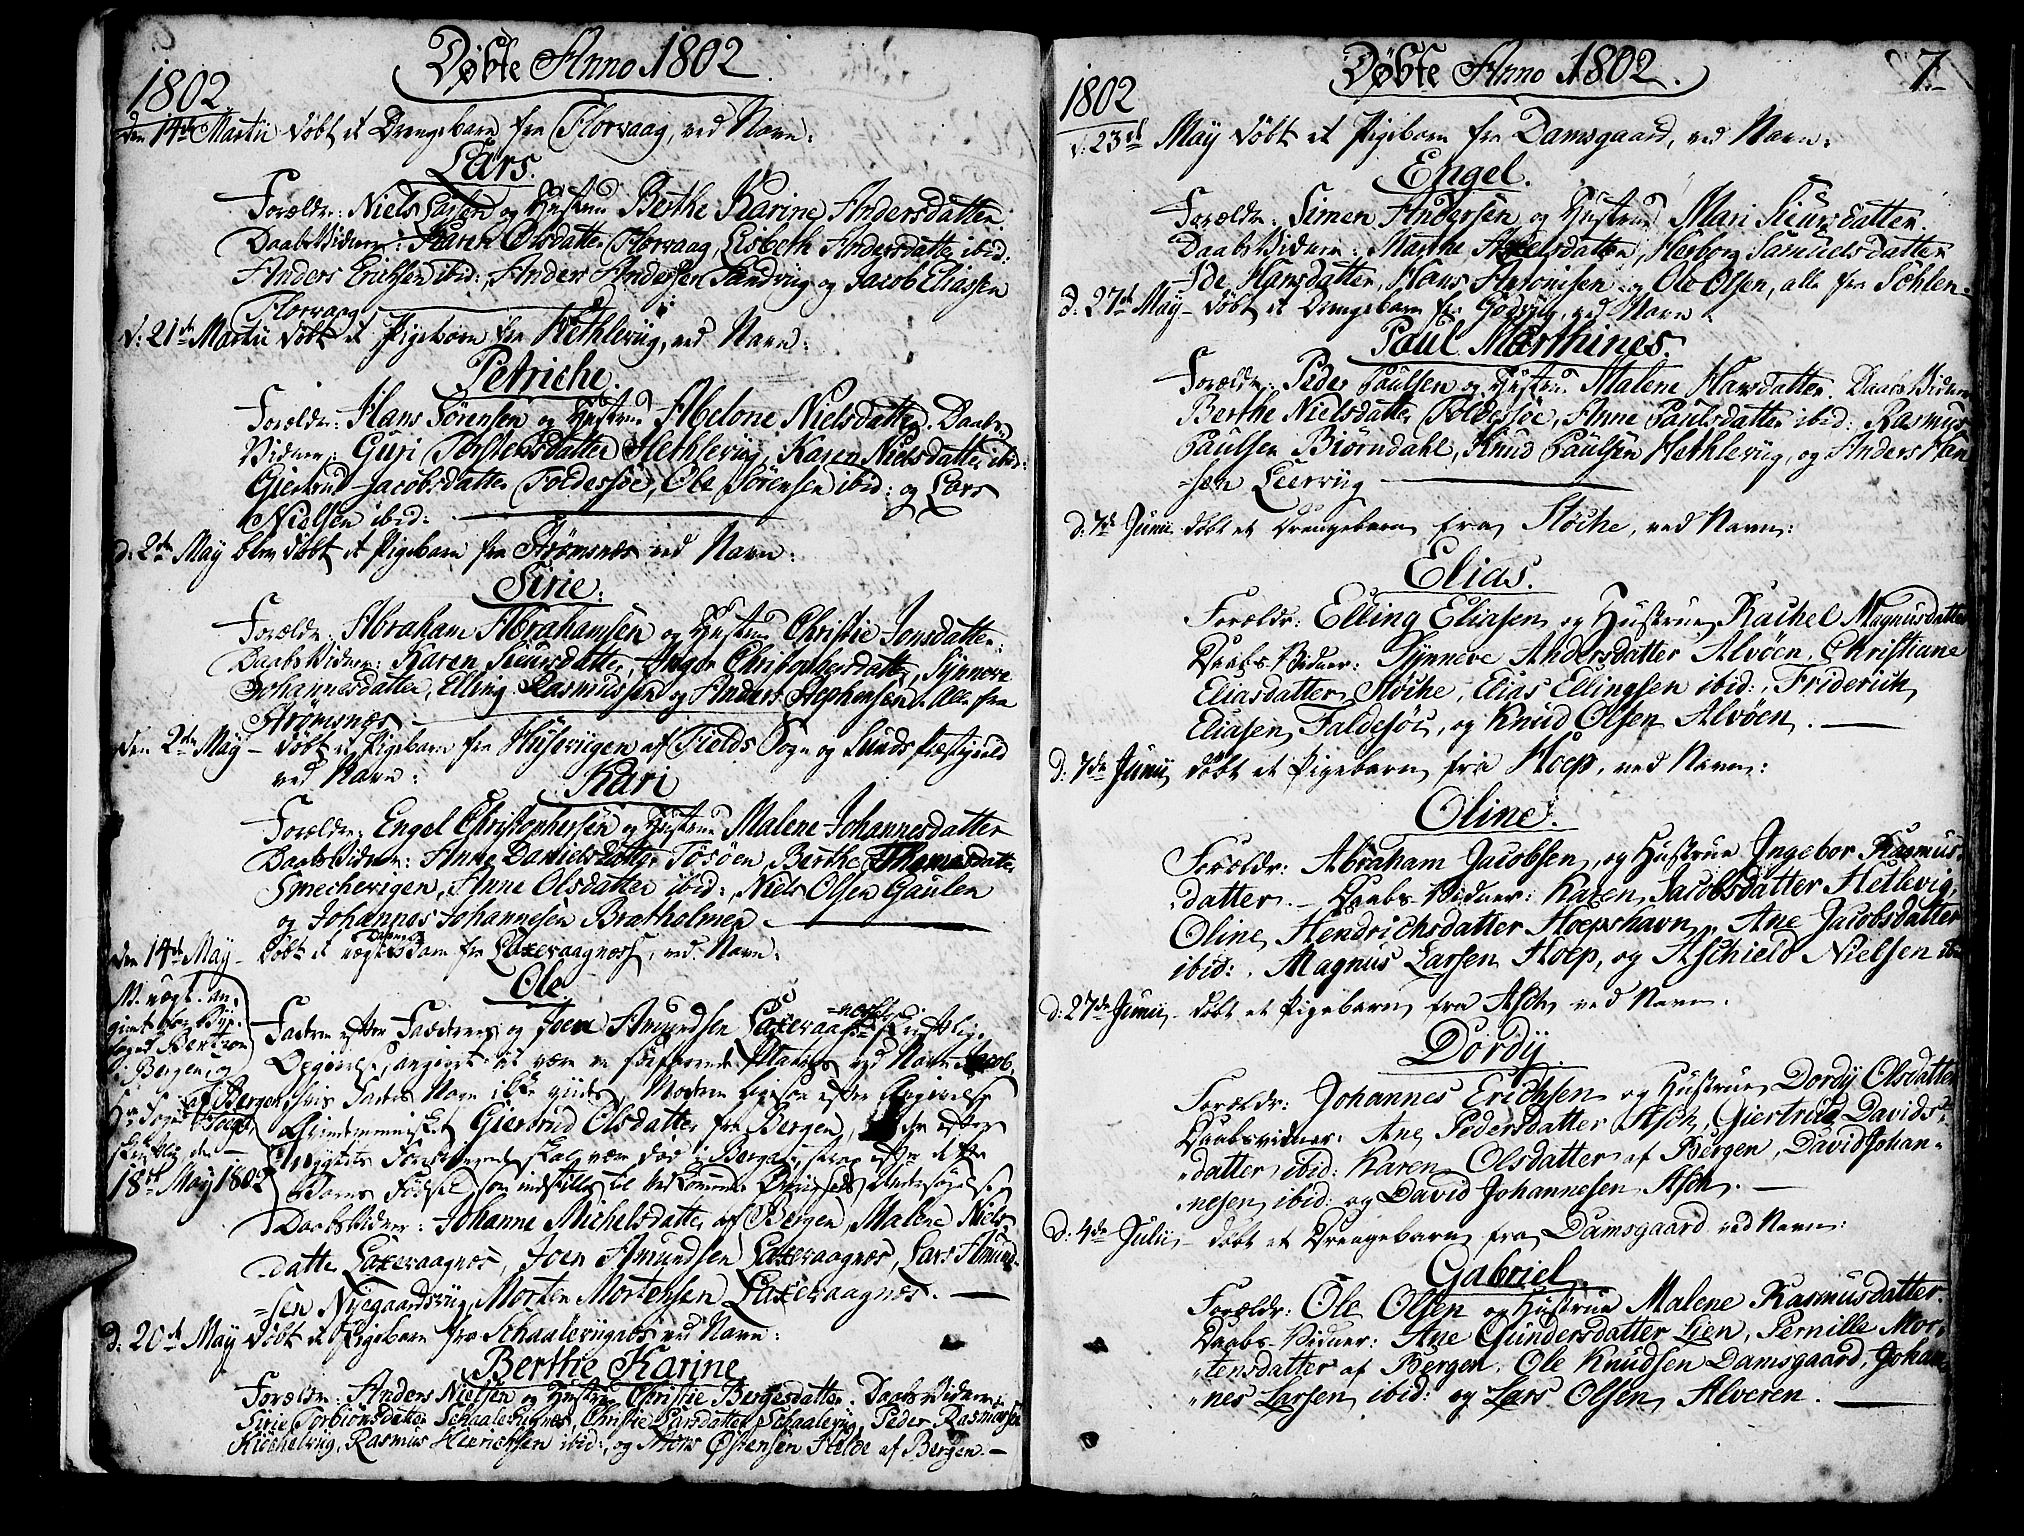 Døbte Anno 1802
1802
den 14de Martii døbt et Drengebarn fra Florvaag, ved Navn:
Lars.
Forældre: Niels Larsen og Hustrue Berthe Karine Andersdatter.
Daabs Vidner: Karen Olsdatter Florvaag, Lisbeth Andersdatter ibid:
Anders Erichsen ibid:, Anders Andersen Sandvig og Jacob Eliassen
Florvaag
d: 21de Martii døbt et Pigebarn fra Hethlevüg, ved Navn:
Petriche.
Forældre: Hans Sørensen og Hustrue Abelone Nielsdatter. Daabs
Vidner: Guri Torstensdatter Hethlevüg, Karen Nielsdatter ibid:
Giertrud Jacobsdatter Foldessöe, Ole Sørensen ibid: og Lars
Nielsen ibid:
d: 2de May blev døbt et Pigebarn fra Strømsnæs ved Navn:
Sirie:
Forældre: Abraham Abrahamsen og Hustrue Christie Jonsdatter:
Daabs Vidner: Karen Siursdatter, Inger Christophersdatter, Synnove
Johannesdatter, Elling Rasmussen og Anders Stephensen. Alle fra
Strømsnæs
den 2den May døbt et Pigebarn fra Husevügen af Fields Sogn og Sunds Præstegield
ved Navn:
Kari
Forældre: Engel Christophersen og Hustrue Malene Johannesdatter
Daabs Vidner: Anne Danielsdatter Tøsøen, Berthe Thomasdatter
Smechevigen, Anne Olsdatter ibid:, Niels Olsen Gaulen
og Johannes Johannesen Bratholmen
den 14de May døbt et uægte Barn fra Laxevaagnæss, ved Navn:
Ole
N. uægt. an-
givet
Bergen, og
af Bergen
18de May 1802
Faderen efter Fadderes og Joen Amundsen Laxevaagnæss skriftlige
Opgivelse, angivet at være en søefarende Matros ved Navn Jacob,
hvis Fader Navn ikke vides, Moderen ligesom efter Angivelse
Qvindemennesket Giertrud Olsdatter fra Bergen,
skal være død i Bergen strax efter dette
Barns Fødsel, som indstilles til vedkommende Øvrigheds Undersøgelse
Daabs Vidner: Johanne Michelsdatter af Bergen, Malene Niels-
datter Laxevaagnæs, Joen Amundsen Laxevaagnæs, Lars Amund-
sen Nyegaardsvüg, Morten Mortensen Laxevaagnæs.
d: 20de May døbt et Pigebarn fra Schaalevügnæs ved Navn:
Berthe Karine
Forældre: Anders Nielsen og Hustrue Christie Bergesdatter. Daabs Vidner:
Sirie Torbiornsdatter Schaalevügnæs, Christie Larsdatter Schaalevüg, Peder Rasmussen
Kiöchelvüg, Rasmus Henrichsen ibid:, og Mons Østensen Helde af Bergen.
Døbte Anno 1802.
7.
1802
d: 23de May døbt et Pigebarn fra Damsgaard, ved Navn:
Engel.
Forældre: Simen Andersen og Hustrue Mari Siursdatter.
Daabs Vidner: Marthe Axelsdatter, Herborg Samuelsdatter
Ide Hansdatter, Hans Aronisen og Ole Olsen, alle fra Sohlen
d: 27de May døbt et Drengebarn fra Godvüg, ved Navn
Paul Marthines.
Forældre: Peder Paulsen og Hustrue Malene Hansdatter. Daabs Vidner
Berthe Nielsdatter Foldessöe, Anne Paulsdatter ibid: Rasmus
Paulsen Biörndahl, Knud Paulsen Hethlevüg, og Anders Han
-sen Leervüg
d: 7de Junii døbt et Drengebarn fra Støche, ved Navn:
Elias.
Forældre: Elling Eliasen og Hustrue Rachel Magnusdatter
Daabs Vidner: Synneve Andersdatter Alvöen, Christiane
Eliasdatter Støche, Elias Ellingsen ibid:, Friderich
Eliasen Faldesöe, og Knud Olsen Alvöen.
d: 7de Junii døbt et Pigebarn fra Hoep, ved Navn:
Oline.
Forældre: Abraham Jacobsen, og Hustrue Ingebor Rasmus-
datter. Daabs Vidner: Karen Jacobsdatter Hetlevig,
Oline Hendrichsdatter Hoepshavn, Ane Jacobsdatter
ibid:, Magnus Larsen Hoep, og Aschield Nielsen ibid
d: 27de Junii døbt et Pigebarn fra Asch ved Navn:
Dordÿ.
Forældre: Johannes Erichsen og Hustrue Dordÿ Olsdatter
Daabsvidner: Ane Pedersdatter Asch, Giertrud Davids-
datter ibid: Karen Olsdatter af Bergen, David Johan-
nesen ibid: og David Johannesen Asch.
d: 4de Julii døbt et Drengebarn fra Damsgaard ved Navn:
Gabriel.
Forældre: Ole Olsen og Hustrue Malene Rasmusdatter.
Daabs-Vidner: Ane Gundersdatter Lien, Pernille Mor-
tensdatter af Bergen, Ole Knudsen Damsgaard, Johan-
nes Larsen ibid: og Lars Olsen Alveren.